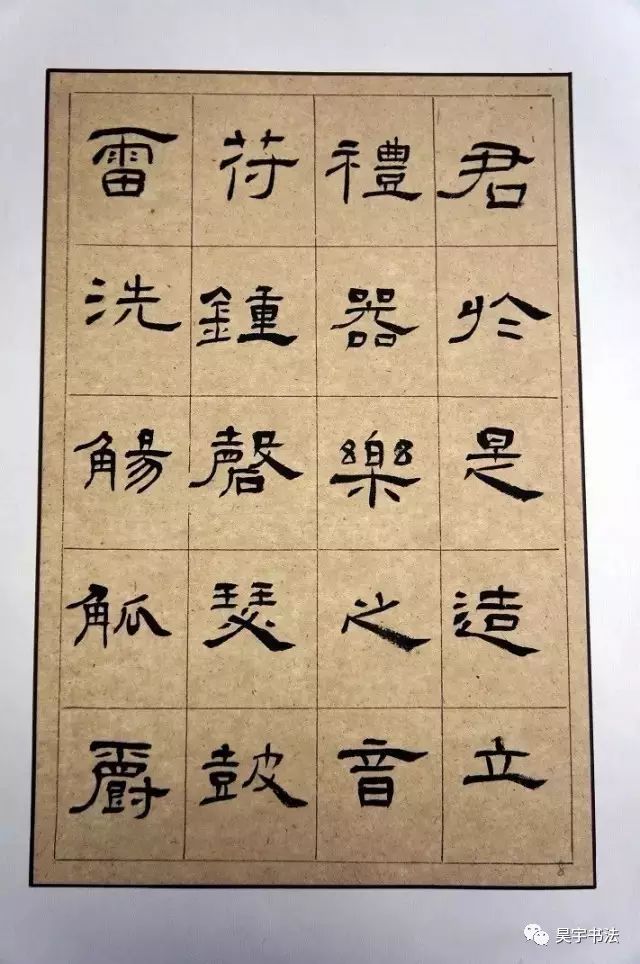 君於是造立
禮器樂之音
符鍾磬瑟鼓
雷洗觴觚爵
8
昊宇书法